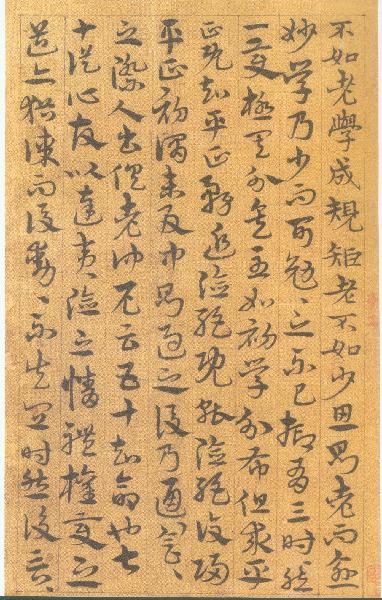 不如老學成規矩老不如少思則老而逾
妙學乃少而可勉〻之不已抑有三時然
一變極其分矣至如初學分布但求平
正既知平正務追險絕既能險絕復歸
平正初謂未及中則過之後乃通會〻
之際人書俱老仲尼云五十知命也七
十從心故以達夷險之情體權變之
道亦猶謀而後動〻不失宜時然後言〻